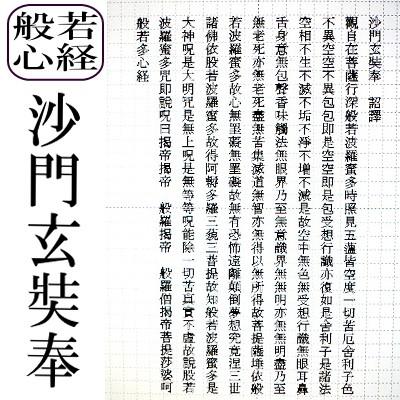 般若
心経
沙門玄奘奉
沙門玄奘奉　詔譯
觀自在菩薩行深般若波羅蜜多時照見五蘊皆空度一切苦厄舍利子色
不異空空不異包包即是空空即是包受想行識亦復如是舍利子是諸法
空相不生不滅不垢不淨不增不減是故空中無色無受想行識無眼耳鼻
舌身意無包聲香味觸法無眼界乃至無意識界無無明亦無無明盡乃至
無老死亦無老死盡無苦集滅道無智亦無得以無所得故菩提薩埵依般
若波羅蜜多故心無罣礙無罣礙故無有恐怖遠離顛倒夢想究竟涅三世
諸佛依般若波羅蜜多故得阿耨多羅三藐三菩提故知般若波羅蜜多是
大神呪是大明呪是無上呪是無等等呪能除一切苦真實不虛故說般若
波羅蜜多呪即說呪曰揭帝揭帝　般羅揭帝　般羅僧揭帝菩提莎婆呵
般若多心経